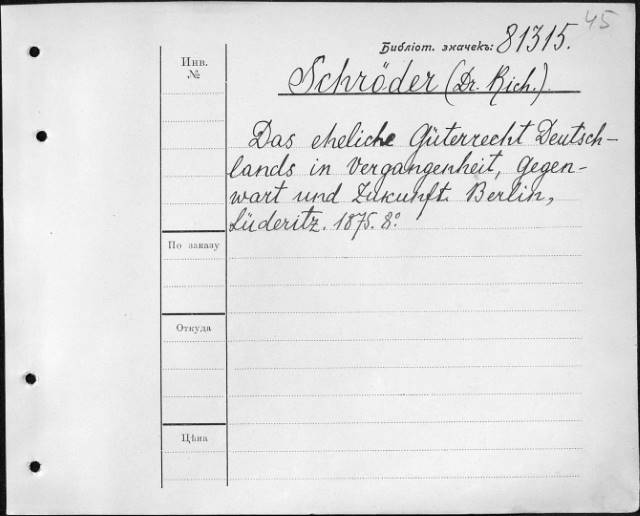 45
Библіот. значекъ: 81315.
Инв.
№
Schröder (Dr. Rich.)
Das eheliche Güterrecht Deutsch-
lands in Vergangenheit, Gegen-
wart und Zukunft. Berlin,
Lüderitz. 1875. 8°.
По заказу
Откуда
Цѣна